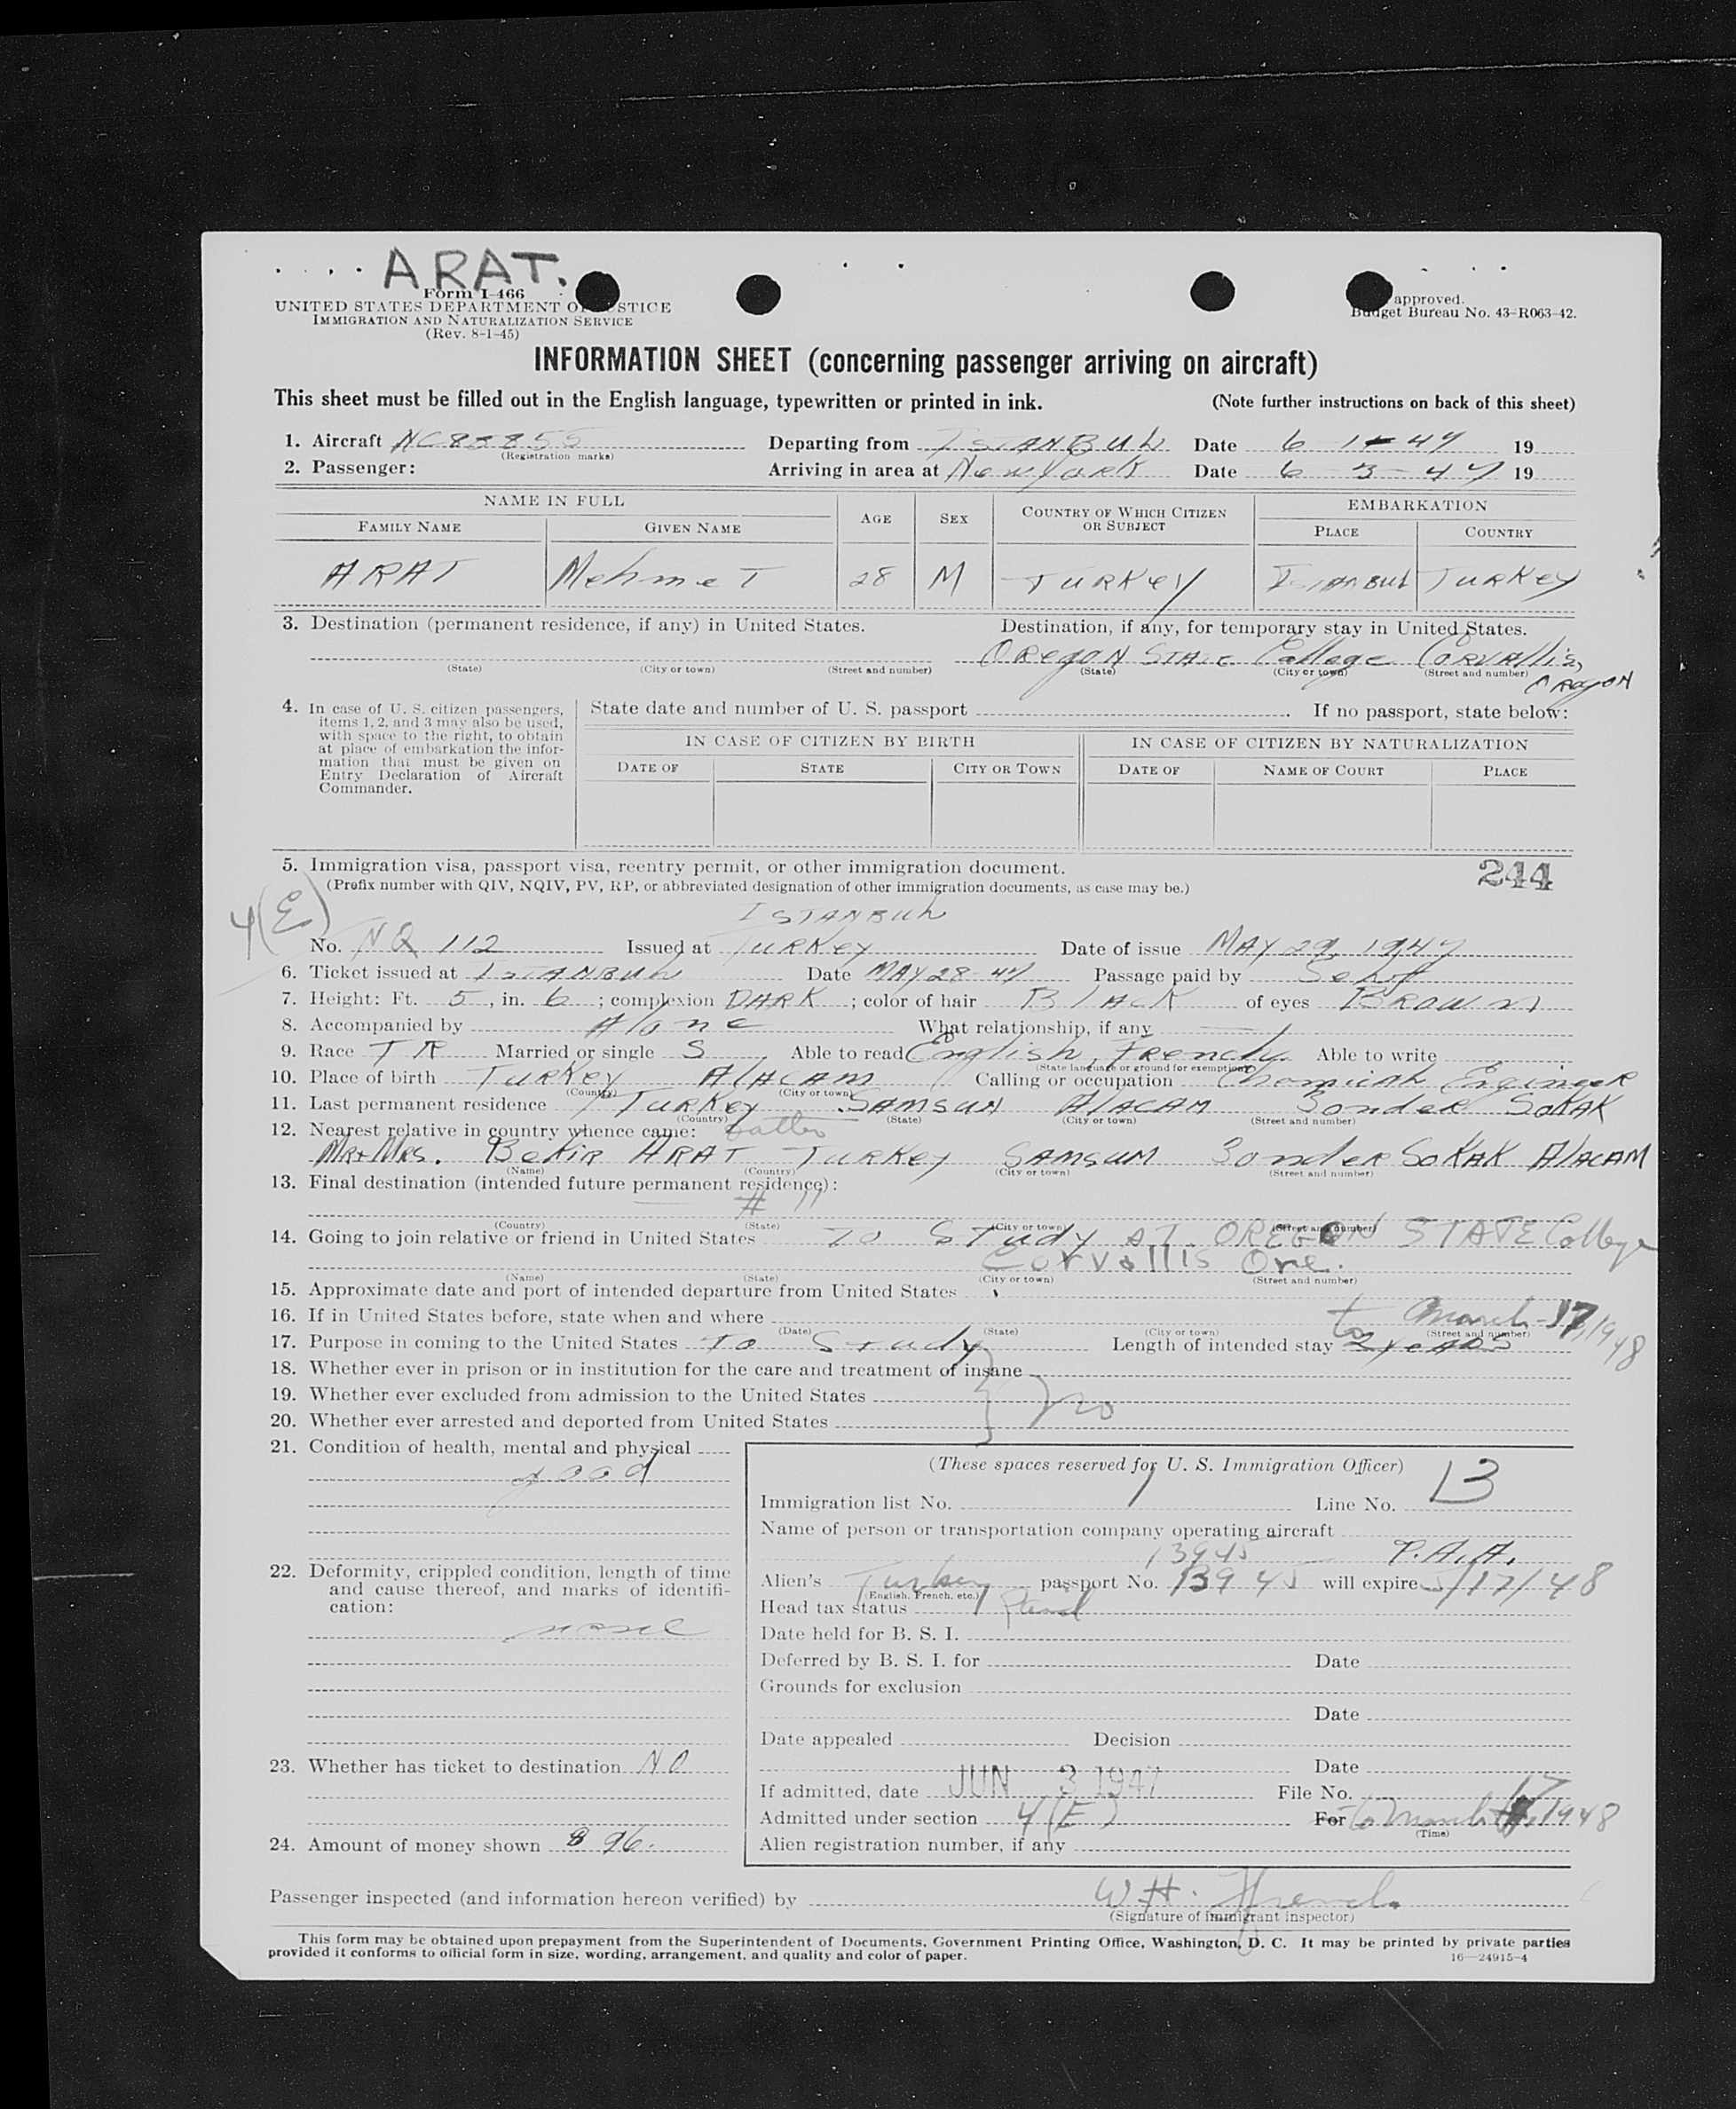 ARAT.
Form I-466
UNITED STATES DEPARTMENT OF JUSTICE
IMMIGRATION AND NATURALIZATION SERVICE
(Rev. 8-1-45)
approved.
Budget Bureau No. 43-R063-42.
INFORMATION SHEET (concerning passenger arriving on aircraft)
This sheet must be filled out in the English language, typewritten or printed in ink. (Note further instructions on back of this sheet)
1. Aircraft Departing from ISTANBUL Date 6-1-47 19
(Registration marks)
2. Passenger: Arriving in area at New York Date 6-3-47 19
NAME IN FULL AGE SEX COUNTRY OF WHICH CITIZEN OR SUBJECT EMBARKATION
FAMILY NAME GIVEN NAME PLACE COUNTRY
ARAT MehmeT 28 M TURKey ISTANBUL TURKey
3. Destination (permanent residence, if any) in United States. Destination, if any, for temporary stay in United States.
OREGON STATE College CORVAllis,
(State) (City or town) (Street and number) (State) (City or town) (Street and number)
OREGON
4. In case of U. S. citizen passengers, items 1, 2, and 3 may also be used, with space to the right, to obtain at place of embarkation the information that must be given on Entry Declaration of Aircraft Commander.
State date and number of U. S. passport If no passport, state below:
IN CASE OF CITIZEN BY BIRTH IN CASE OF CITIZEN BY NATURALIZATION
DATE OF STATE CITY OR TOWN DATE OF NAME OF COURT PLACE
5. Immigration visa, passport visa, reentry permit, or other immigration document. 244
(Prefix number with QIV, NQIV, PV, RP, or abbreviated designation of other immigration documents, as case may be.)
4(E)
ISTANBUL
No. NQ 112 Issued at TURKey Date of issue MAY 29, 1947
6. Ticket issued at ISTANBUL Date MAY 28-47 Passage paid by Self
7. Height: Ft. 5, in. 6; complexion DARK; color of hair BlACK of eyes BROWN
8. Accompanied by Alone What relationship, if any
9. Race TR Married or single S Able to read English, French Able to write
(State language or ground for exemption)
10. Place of birth TURKey AlACAM Calling or occupation Chemical Engineer
(Country) (City or town)
11. Last permanent residence TURKey SAMSUN AlACAM Bonder SOKAK
(Country) (State) (City or town) (Street and number)
12. Nearest relative in country whence came: father
Mr+Mrs. Bekir ARAT TURKey SAMSUM Bonder SoKAK AlACAM
(Name) (Country) (City or town) (Street and number)
13. Final destination (intended future permanent residence):
# 11
(Country) (State) (City or town) (Street and number)
14. Going to join relative or friend in United States To STudy AT OREGON STATE College
Corvallis Ore.
(Name) (State) (City or town) (Street and number)
15. Approximate date and port of intended departure from United States
16. If in United States before, state when and where
(Date) (State) (City or town) (Street and number)
to March 17, 1948
17. Purpose in coming to the United States To Study Length of intended stay 2 yeARS
18. Whether ever in prison or in institution for the care and treatment of insane
19. Whether ever excluded from admission to the United States
no
20. Whether ever arrested and deported from United States
21. Condition of health, mental and physical
good
22. Deformity, crippled condition, length of time and cause thereof, and marks of identification:
none
23. Whether has ticket to destination NO
24. Amount of money shown $ 96.
(These spaces reserved for U. S. Immigration Officer)
Immigration list No. 1 Line No. 13
Name of person or transportation company operating aircraft
13945 P.A.A.
Alien's passport No. 13945 will expire 5/17/48
(English, French, etc.)
Head tax status
Date held for B. S. I.
Deferred by B. S. I. for Date
Grounds for exclusion
Date
Date appealed Decision
Date
If admitted, date JUN 3 1947 File No.
Admitted under section 4(E) For to March 17, 1948
(Time)
Alien registration number, if any
Passenger inspected (and information hereon verified) by W.H. French
(Signature of immigrant inspector)
This form may be obtained upon prepayment from the Superintendent of Documents, Government Printing Office, Washington, D. C. It may be printed by private parties
provided it conforms to official form in size, wording, arrangement, and quality and color of paper. 16—24915-4